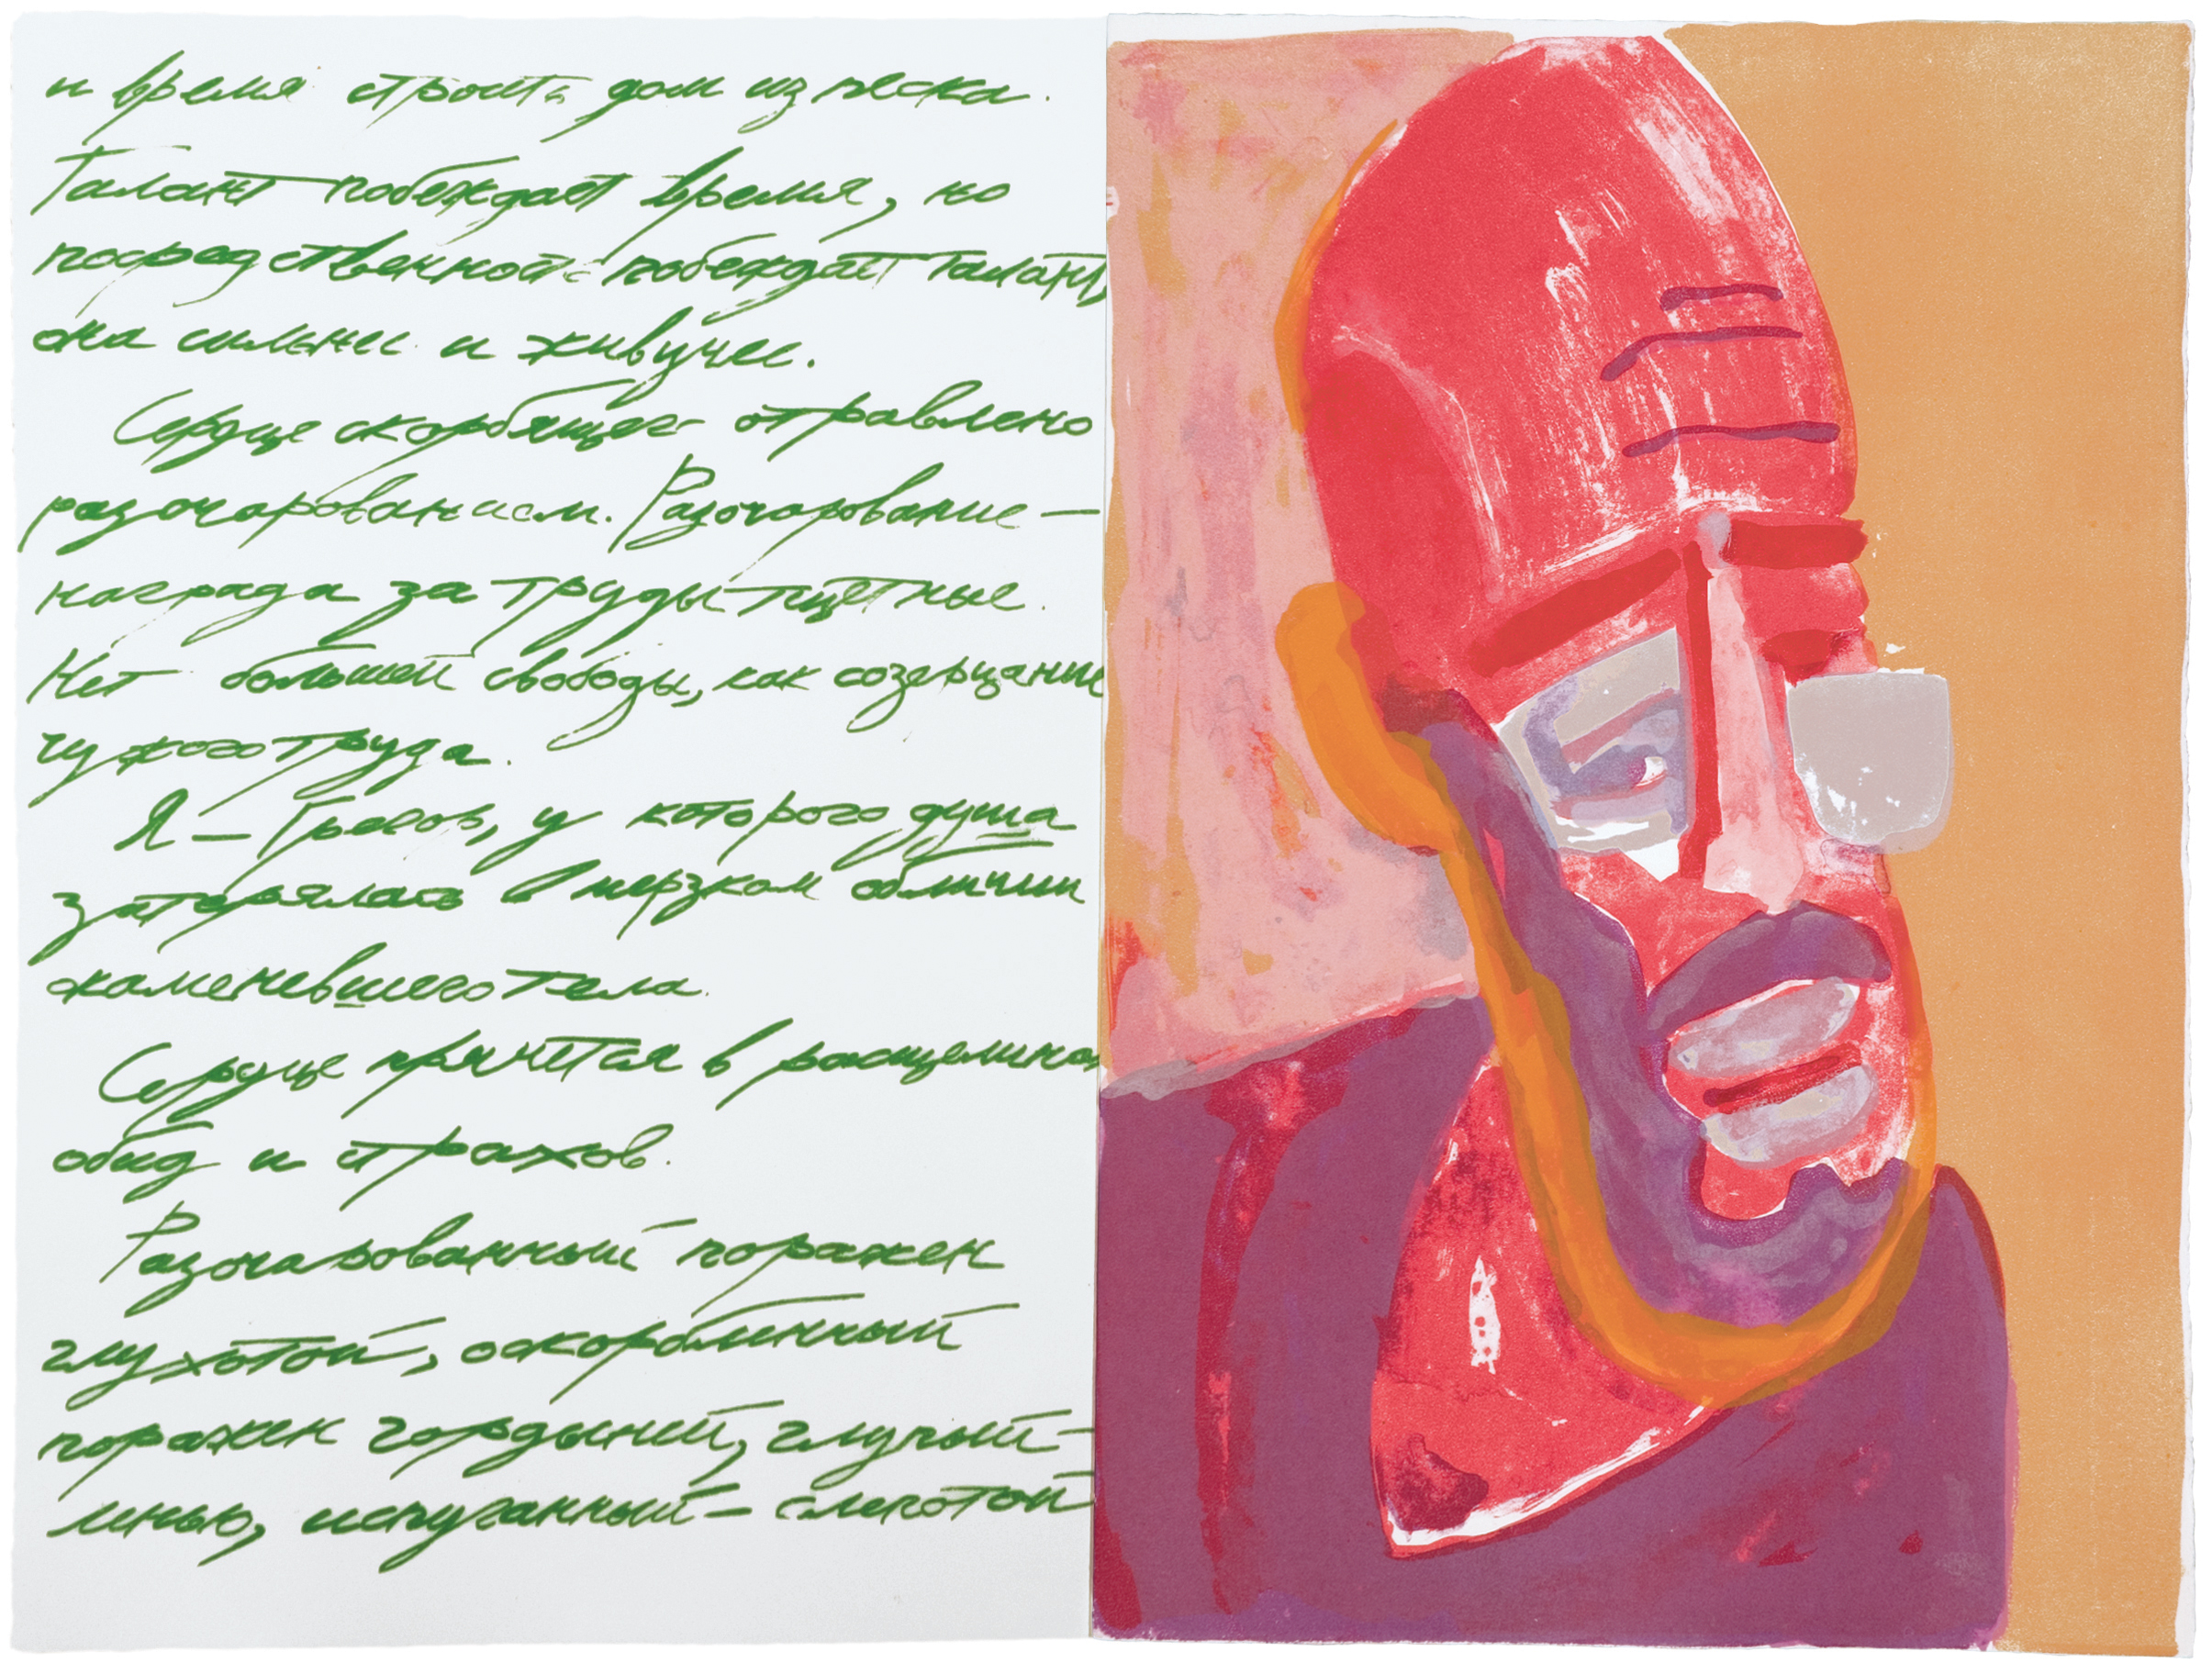 и время строить дом из песка.
Талант побеждает время, но
посредственность побеждает талант,
она сильнее и живучее.
Сердце скорбящего отравлено
разочарованием. Разочарование —
награда за труды тщетные.
Нет большей свободы, как созерцание
чужого труда.
Я — Грегов, у которого душа
затерялась в мерзком обличии
каменевшего тела.
Сердце прячется в расщелинах
обид и страхов.
Разочарованный поражен
глухотой, оскорбленный
поражен гордыней, глупый —
ленью, испуганный — слепотой